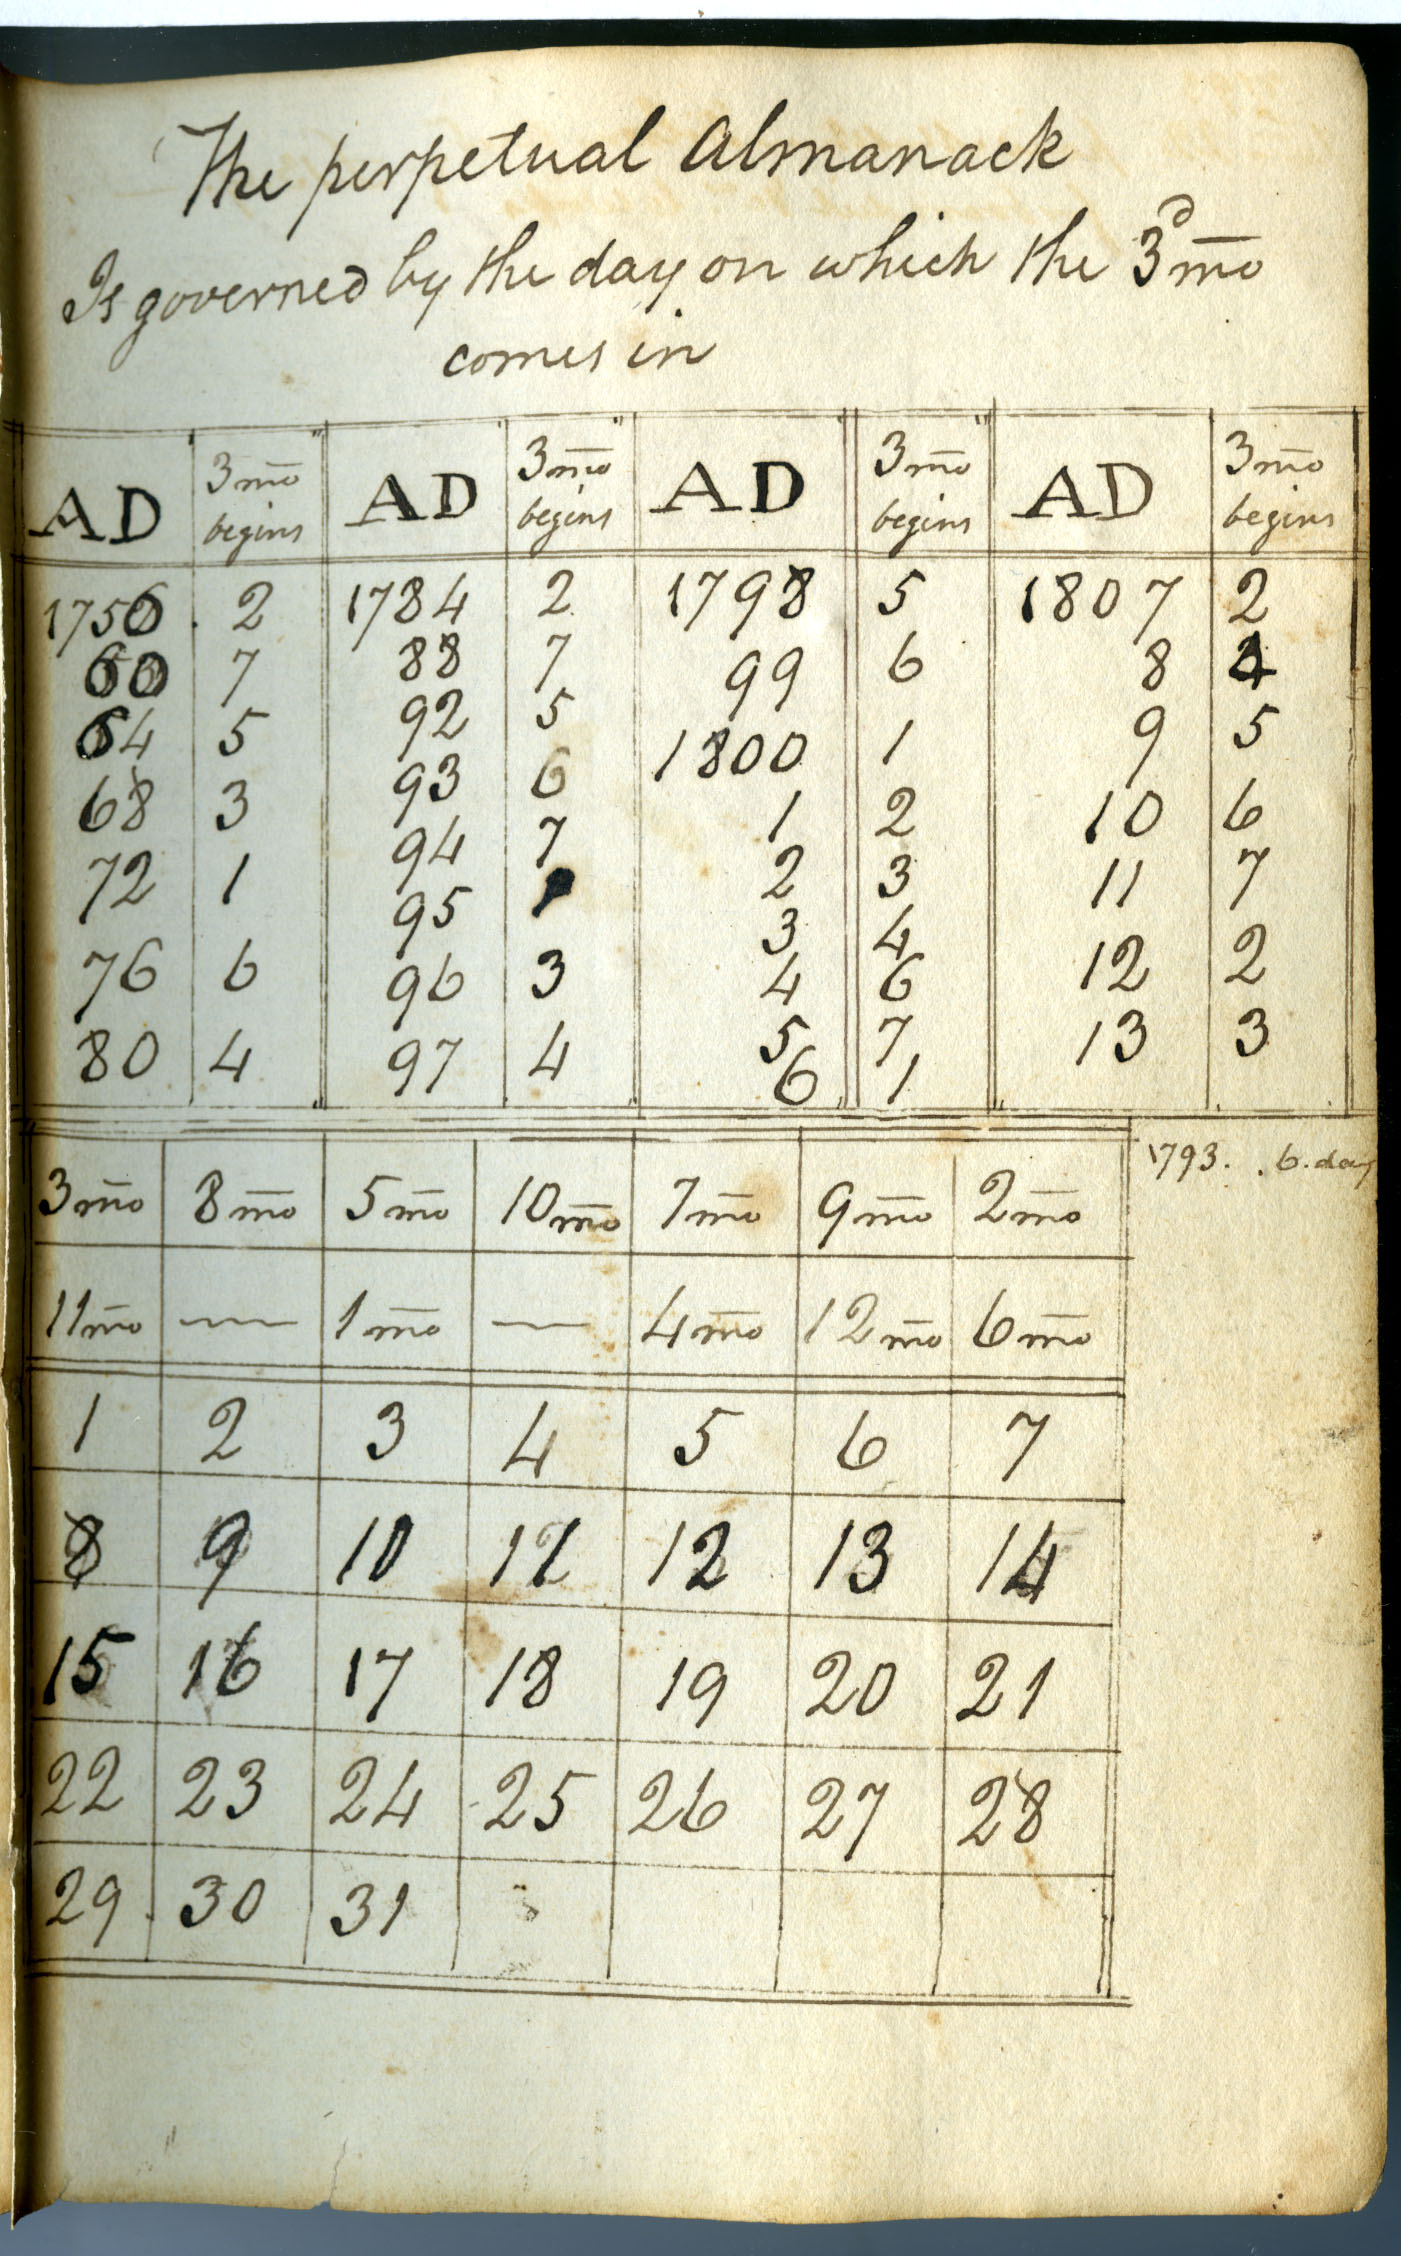 The perpetual Almanack
Is governed by the day on which the 3d mo
comes in
AD 3mo begins AD 3mo begins AD 3mo begins AD 3mo begins
1756 2 1784 2 1798 5 1807 2
60 7 88 7 99 6 8 4
64 5 92 5 1800 1 9 5
68 3 93 6 1 2 10 6
72 1 94 7 2 3 11 7
76 6 95 3 4 12 2
80 4 96 3 4 6 13 3
97 4 5 7
6 1
1793. . 6. day
3mo 8mo 5mo 10mo 7mo 9mo 2mo
11mo — 1mo — 4mo 12mo 6mo
1 2 3 4 5 6 7
8 9 10 11 12 13 14
15 16 17 18 19 20 21
22 23 24 25 26 27 28
29 30 31